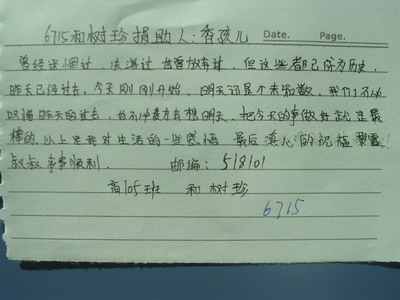 6715和树珍捐助人：香孩儿 Date. Page.
曾经迷惘过，流泪过 也曾放弃过，但这些都已成为历史，
昨天已经过去，今天刚刚开始，明天还是个未知数，我们不必
昨天的过去，也不必费力去想明天，把今天的事做好就是最
棒的，以上是我对生活的一些感悟 最后 的祝福
叔叔事事顺利。 邮编：518101
高105班 和树珍
6715